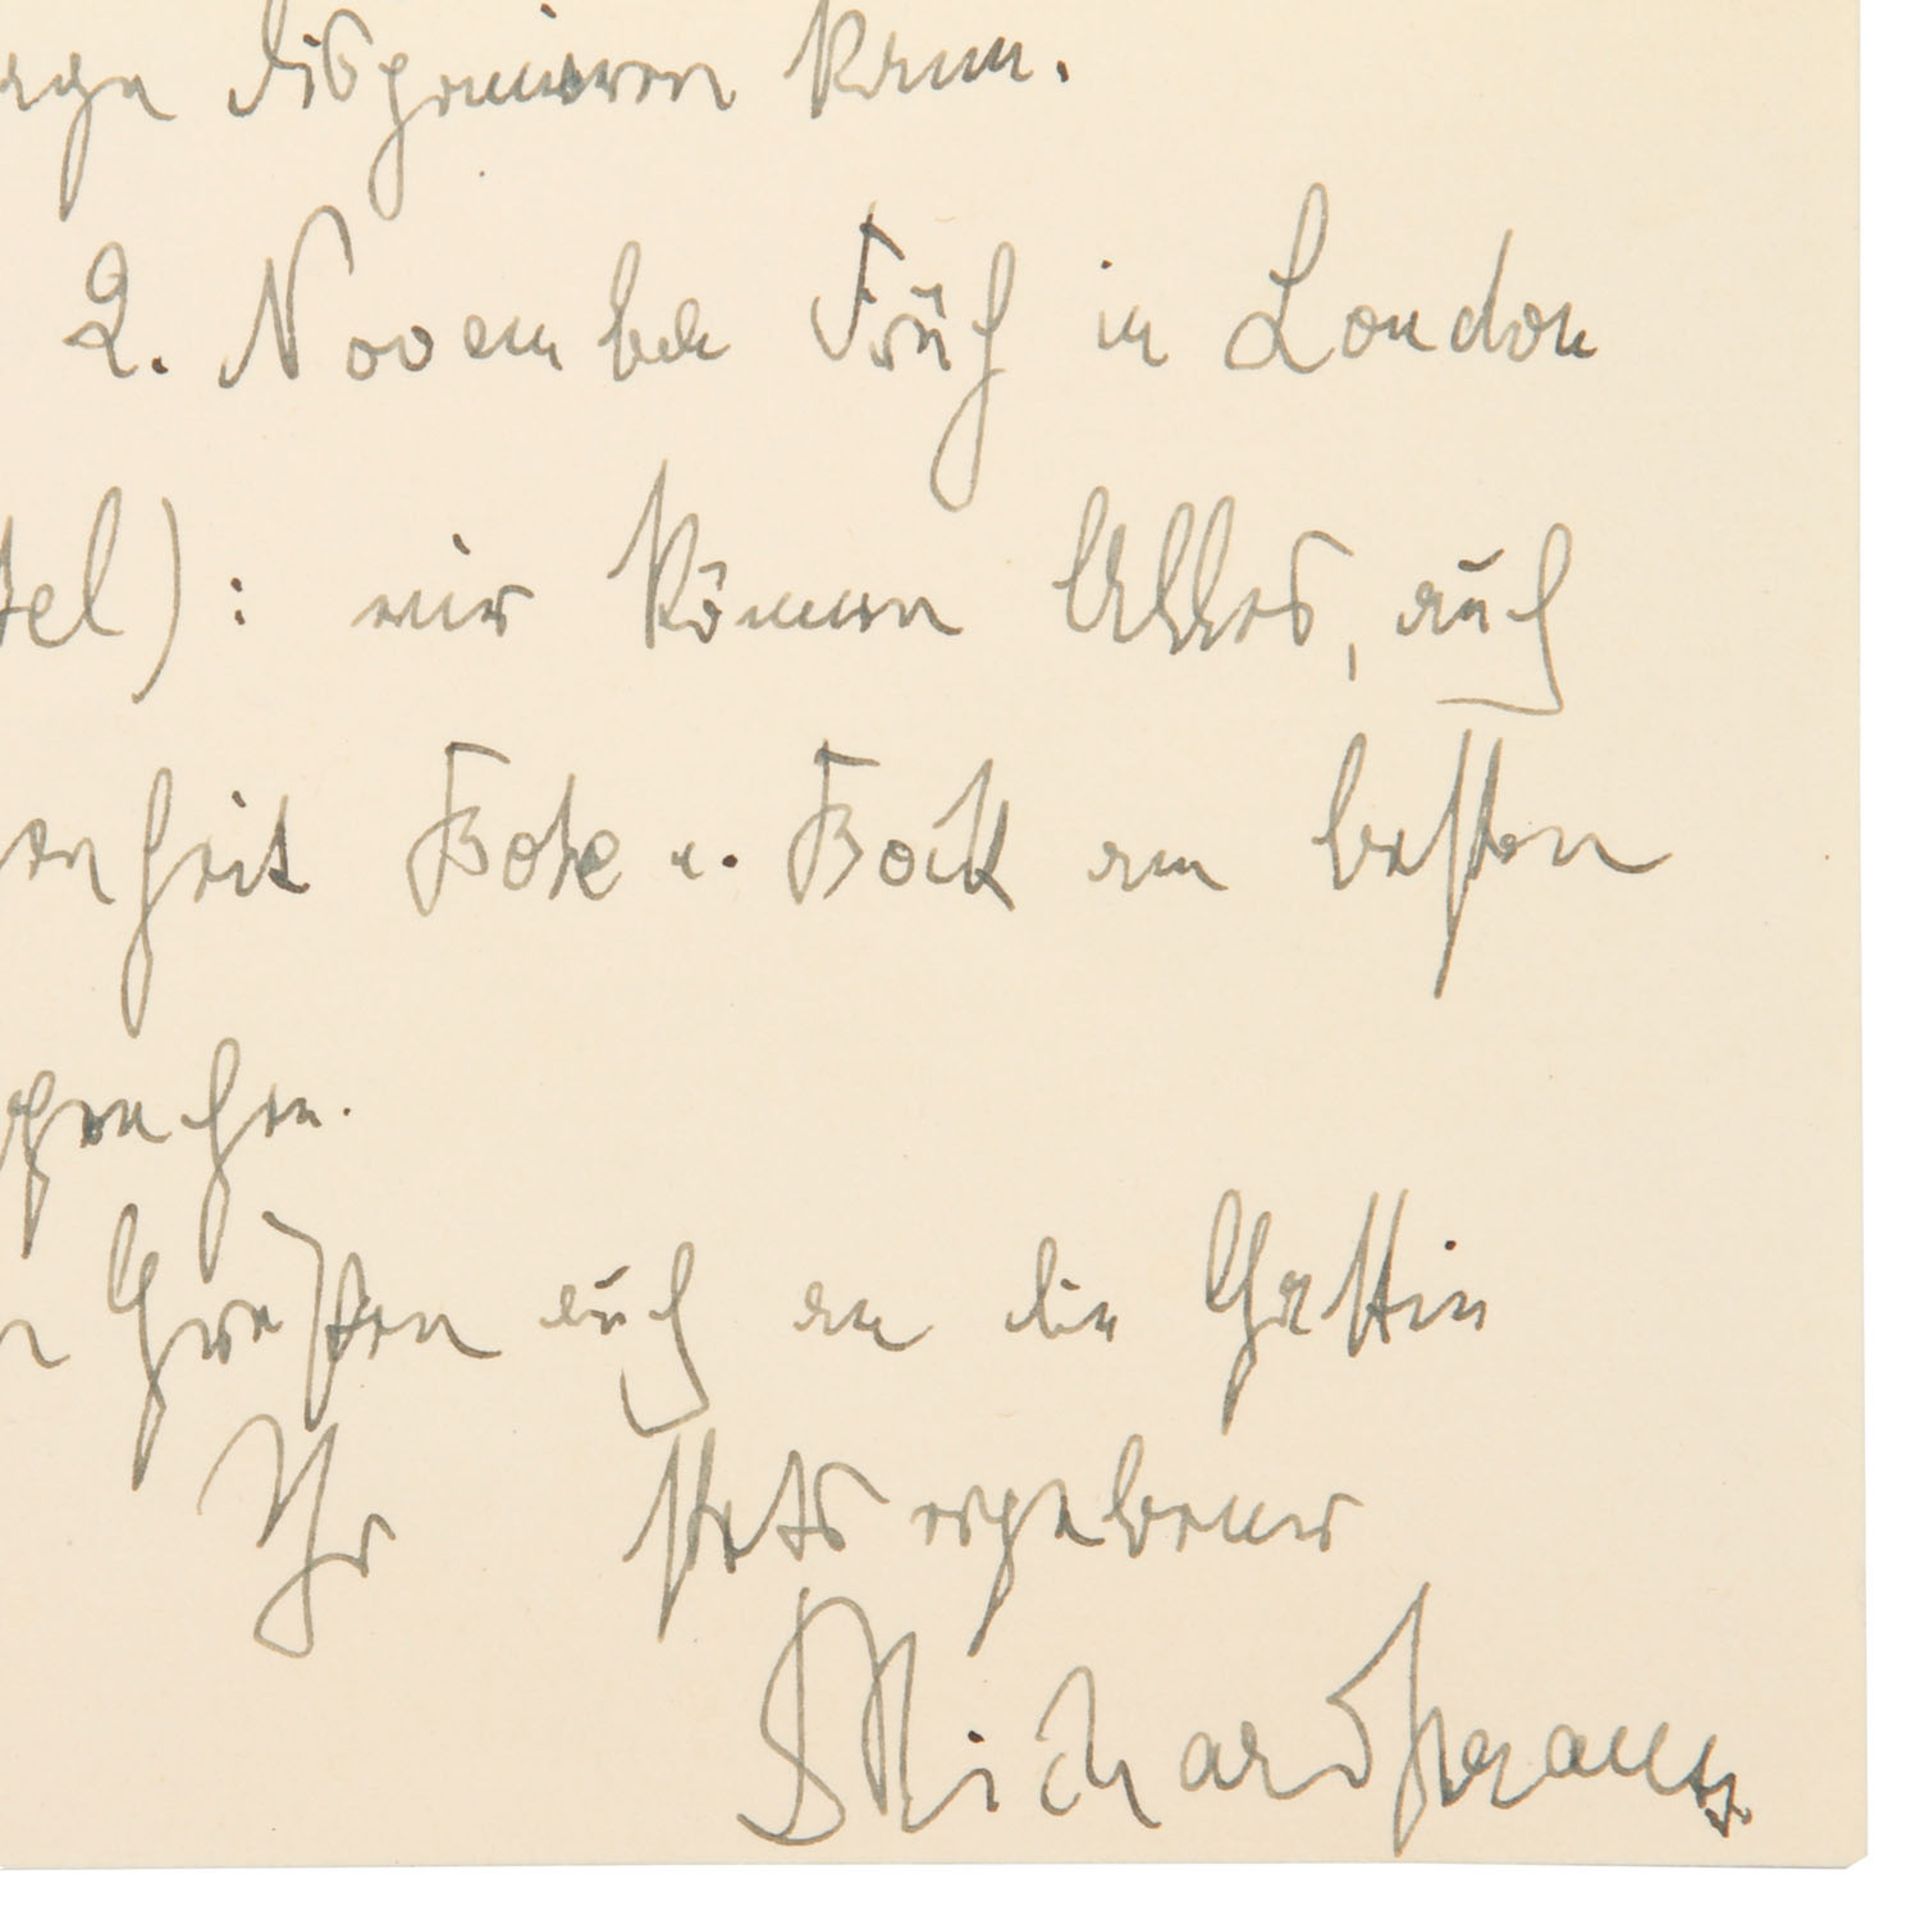 disponieren kann.
2. November Früh in London
tel): wir können Alles, auch
enheit Bote u. Bock am besten
sprechen.
n Grüßen auch an die Gattin
Ihr stets ergebener
Richard Strauss